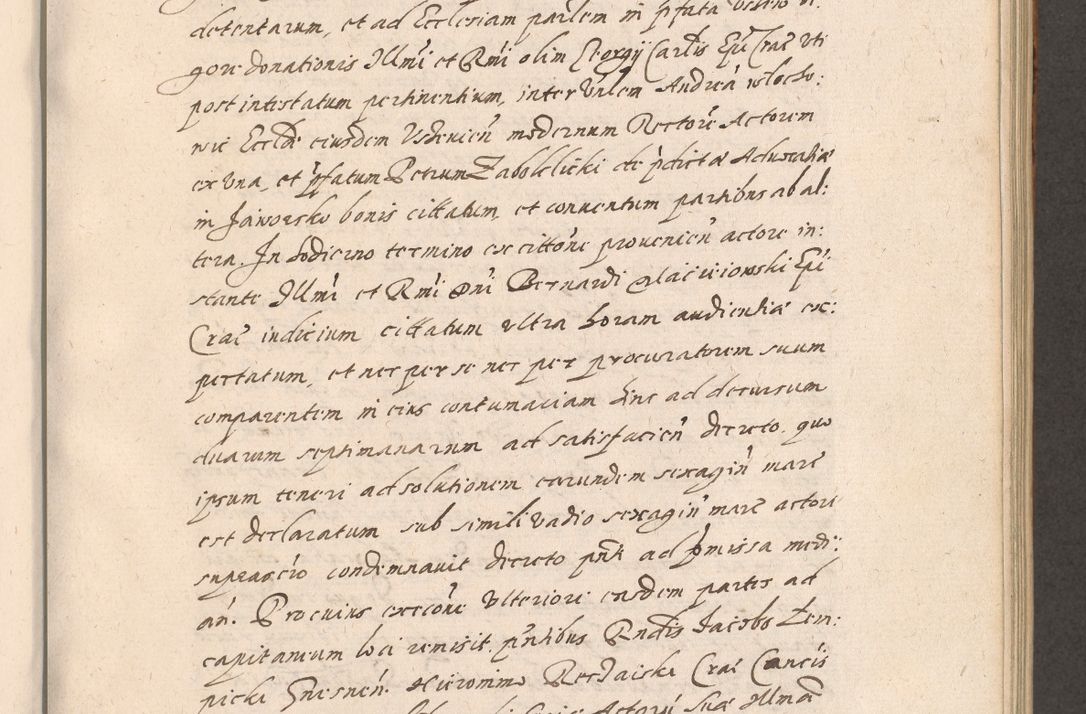 detentarum, et ad Ecclesiam partem in p̃fata
gore donationis Illmi et Rmi olim Georgy Cardlis Epi Crac̃ uti
post intestatum pertinentium, inter Vnlem Andreã wlocho:
wic Ecclæ eiusdem Vsdenien̄ modernum Rectorẽ Actorem
ex Vna, et p̃fatum Petrum Zabokliczki de p̃dicta Aduocatia
in Jaworsko bonis cittatum, et conuentum partibus ab al:
tera. In hodierno termino ex cittõne prouenien̄ actore in:
stante Illmi et Rmi Dni Bernardi Macieiowski Epi
Crac̃ iudicium cittatum ultra horam audientiæ ex:
pectatum, et nec per se nec per procuratorem suum
comparentem in eius contumaciam hinc ad decursum
duarum septimanarum ad satisfacien̄ decreto, quo
ipsum teneri ad solutionem earundem sexagin̄ marc̃
est declaratum sub simili vadio sexagin̄ marc̃ actori
suprascr̃io condemnauit decreto pñti ad p̃missa medi:
añ. Pro cuius execõne Vlteriore easdem partes ad
capitaneum loci remisit. p̃ntibus Rndis Jacobo Zem:
picki Gnesnen̄. Hieronimo Recẑaiski Crac̃ Cancis
Actorũ Suæ Illmæ